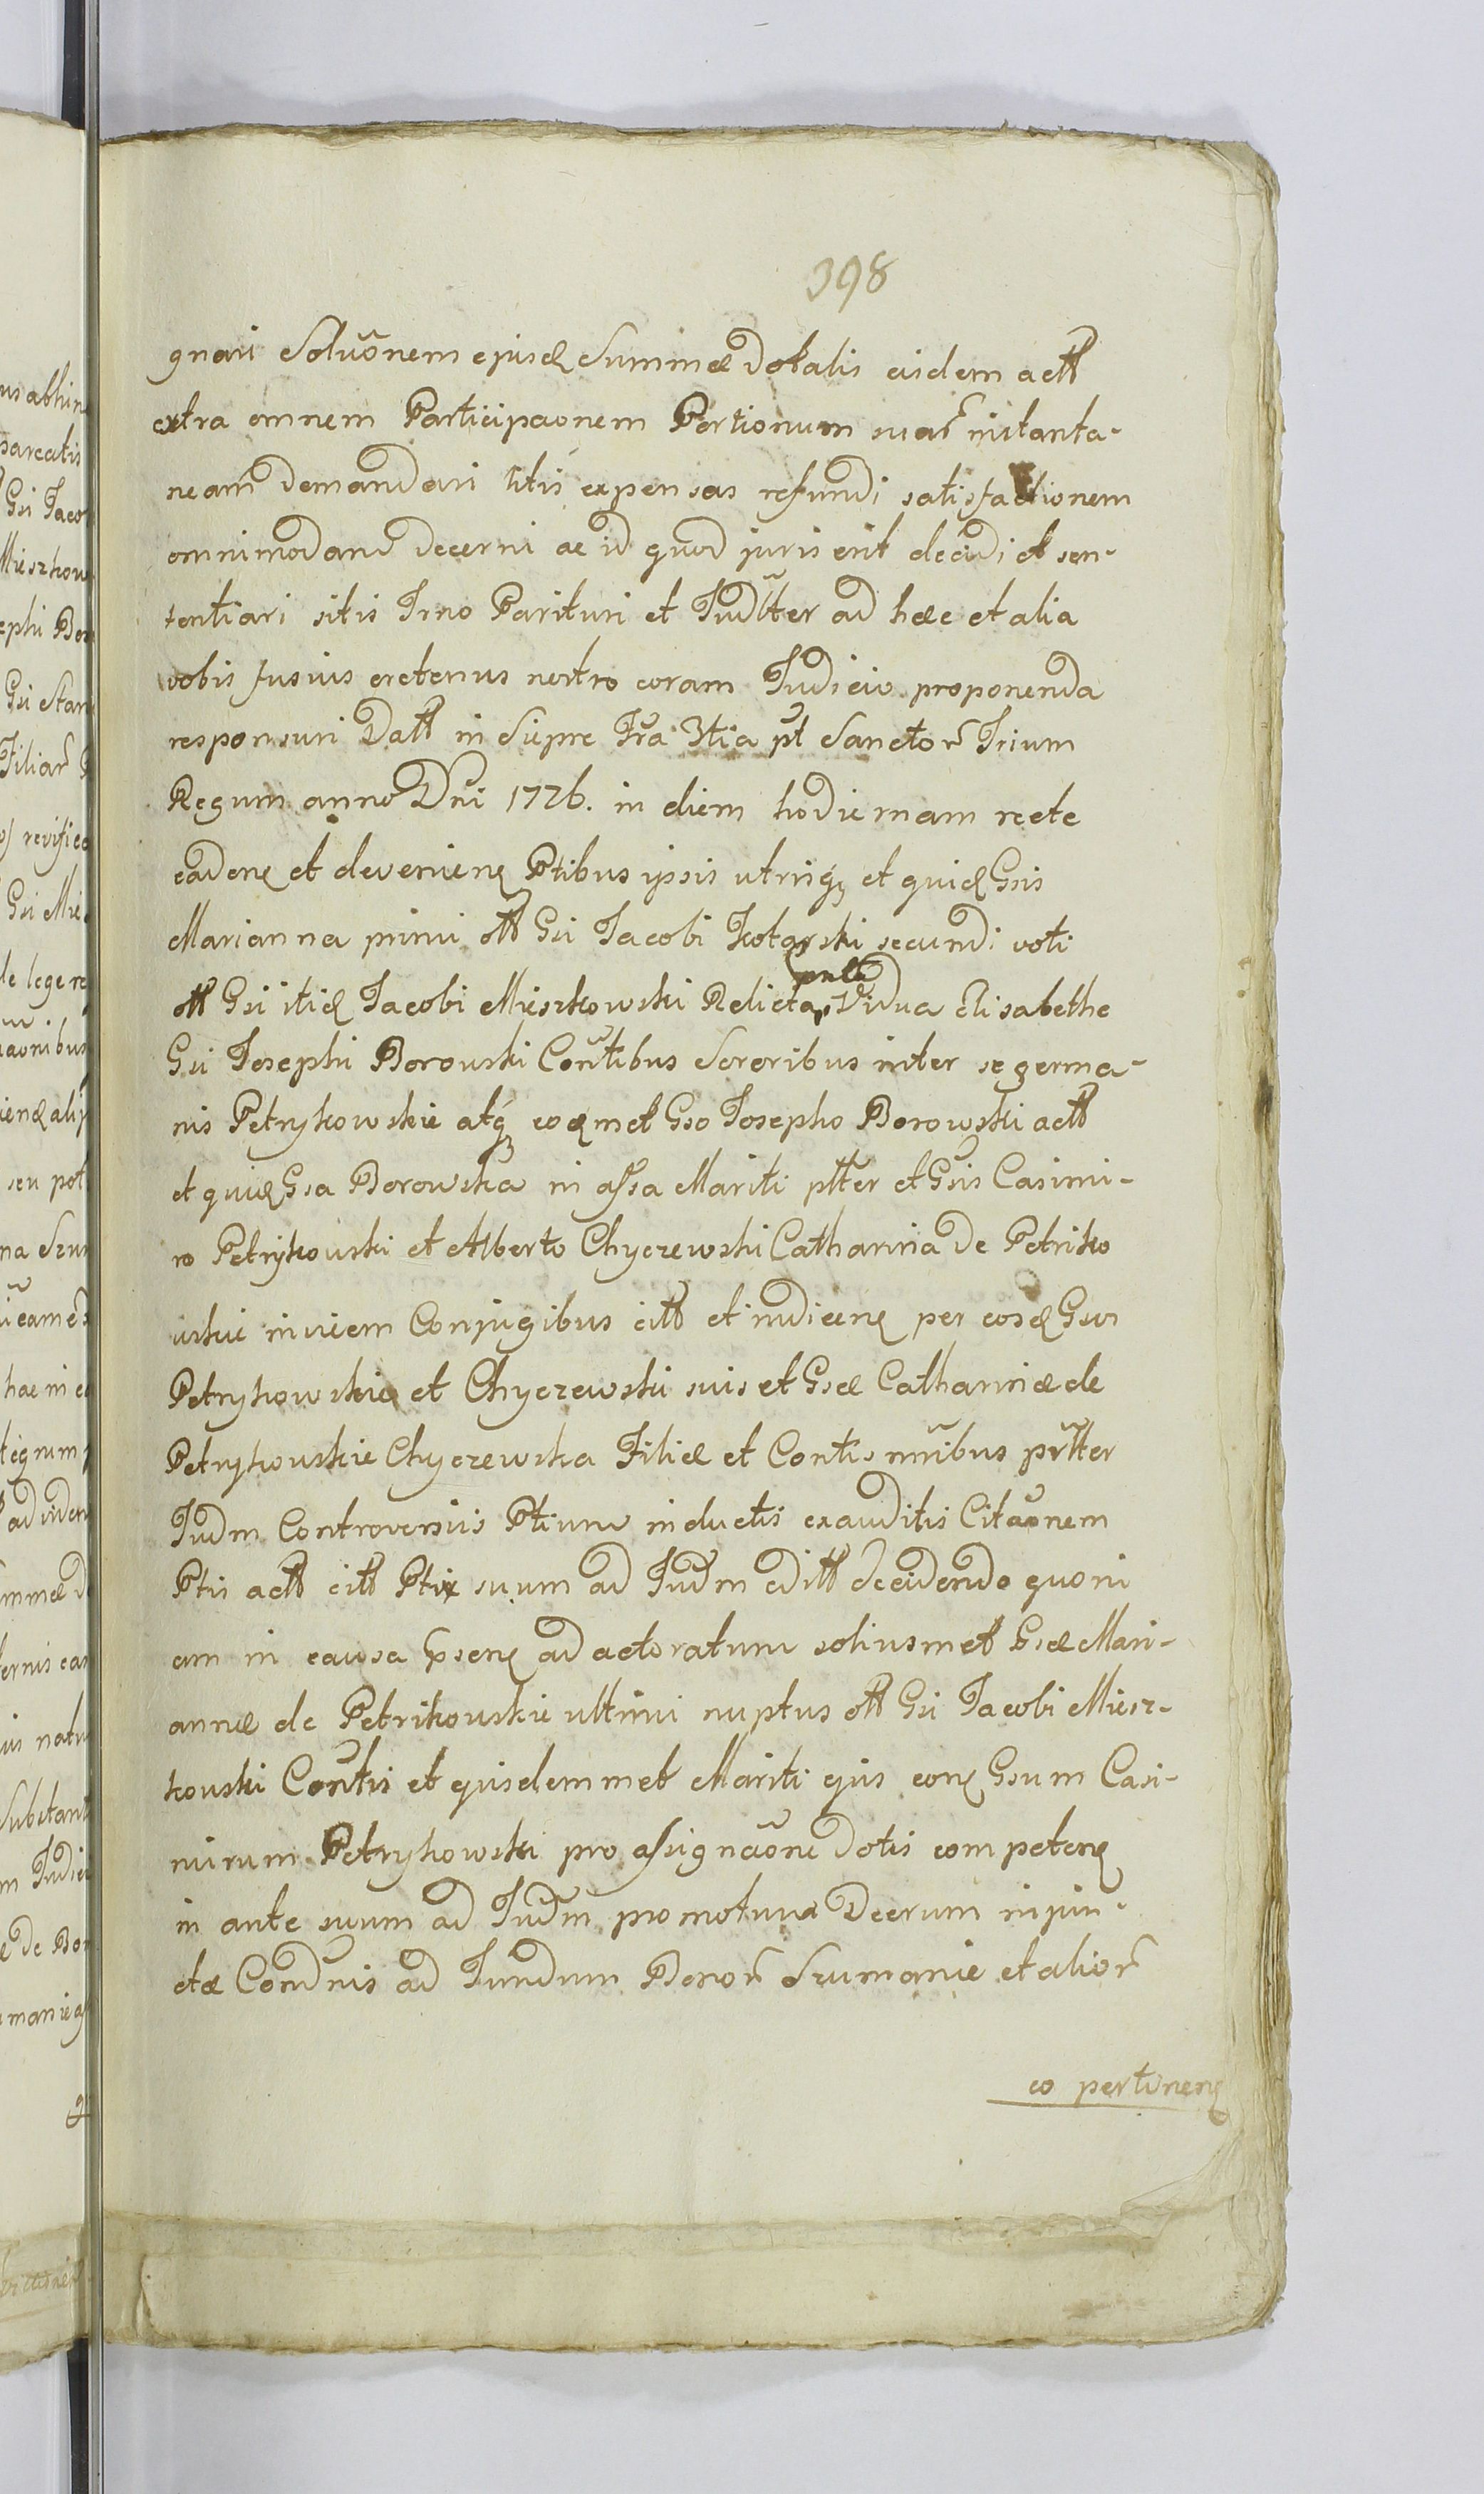 398
gnari Soluõnem ejusd Summæ Dotalis eisdem actt
extra omnem Participaonem Portionum suar̃ instanta-
neam demandari litis expensas refundi satisfactionem
omnimodam decerni ac id quod juris erit decidi et sen-
tentiari sitis Trno Parituri et Judlter ad hæc et alia
vobis fusius eretenus nostro coram Judicio proponenda
responsuri Datt in Siepre Fra 3tia pt Sanctor̃ Trium
Regum anno Dni 1726. in diem hodiernam recte
caden et devenien Ptibus ipsis utrinq et quid Gsis
Marianna primi ott Gsi Jacobi Kotarski secundi voti
ott Gsi itid Jacobi Mieszkowski Relicta Vidua Elisabethe
Gsi Josephi Borowski Contibus Sororibus inter se germa-
nis Petrykowskie atq eodmet Gso Josepho Borowski actt
et quid Gsa Borowska in assa Mariti ptter et Gsis Casimi-
ro Petrykowski et Alberto Chyczewski Catharina de Petriko
wskie invicem Conjugibus citt et indicen per eosd Gsos
Petrykowskie et Chyczewski suis et Gsæ Catharinæ de
Petrykowskie Chyczewska Filiæ et Contis nnibus prtter
Judm Controversiis Ptium inductis exauditis Citaonem
Ptis actt citt Ptix suum ad Judm editt decidendo quoni
am in causa psen ad actoratum soliusmet Gsæ Mari-
annæ de Petrikowskie ultimi nuptus ott Gsi Jacobi Miesz-
kowski Contis et ejusdemmet Mariti ejus con Gsum Casi-
mirum Petrykowski pro assignaõne dotis competen
in ante suum ad Judm promotum Decrum injun-
ctæ Condnis ad Fundum Bonor̃ Szumanie et alior̃
eo pertinen